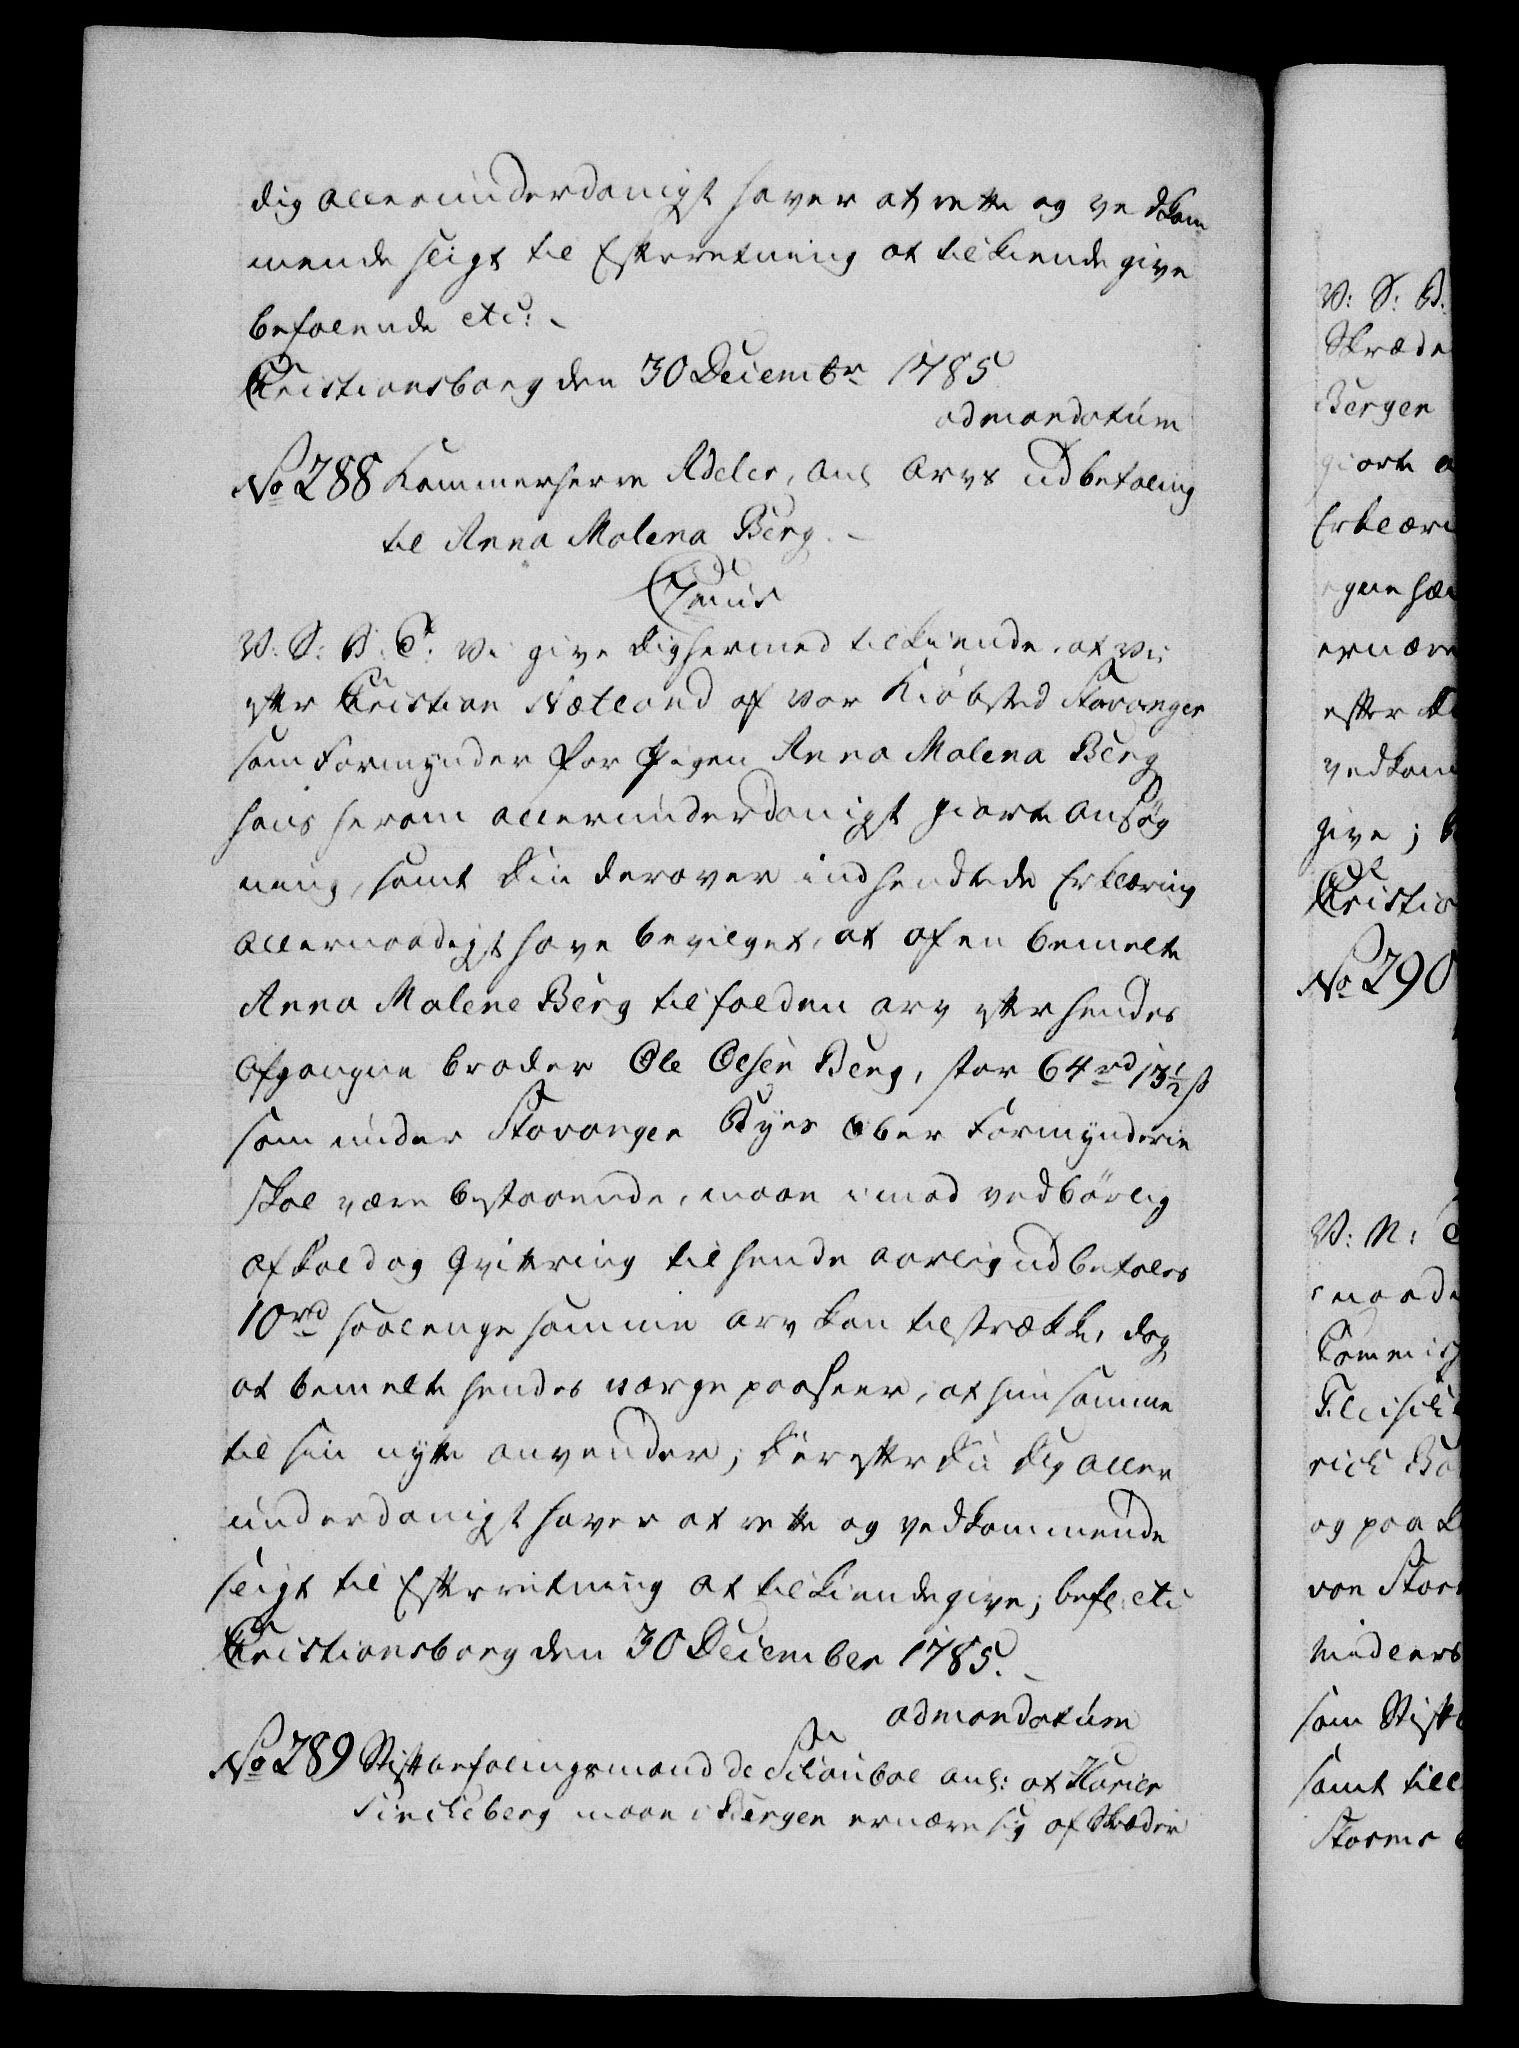 dig allerunderdanigst haver at rette og vedkom
mende sligt til Efterretning at tilkiende give
befalende etc: -
Christiansborg den 30 Decembr 1785
ad mandatum
No 288 Kammerherre Adeler, anl Arvs udbetaling
til Anna Malena Berg. -
Chr: 7mus
V: S: B: T: Vi give dig hermed tilkiende, at vi
efter Christian Netland af vor Kiøbsted Stavanger
som Formynder for Pigen Anna Malena Berg
hans herom allerunderdanigst giorte Ansøg
ning, samt din derover indsendtede Erklæring
allernaadigst have bevilget, at af en bemelte
Anna Malene Berg tilfalden arv efter hendes
afgangne broder Ole Olsen Berg, stor 64 rd 13½ ß
som under Stavanger Byes Ober Formynderie
skal være bestaaende, maae imod vedbørlig
afkald og Qvittering til hende aarlig udbetales
10 rd saalenge samme arv kan tilstrække, dog
at bemelte hendes værge paaseer, at hun samme
til sin nytte anvender; Derefter du dig aller
underdanigst haver at rette og vedkommende
sligt til Efterretning at tilkiendegive; befl: etc
Christiansborg den 30 December 1785. -
ad mandatum
No 289 Stiftbefalingsmand de Schoubøe anl: at
maae i Bergen ernære sig af Skræder
V: S: B:
Skræde
Bergen
giorte a
Erklæri
egne hæn
ernære
efter
vedkom
give; b
Christia
No 290
V: N: T
naade
Commiss
og paa
von Stor
som Stift
samt till
Storms